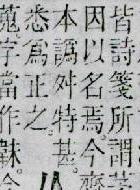 皆詩箋所謂
因以名焉今齊
本譌舛特甚。
悉爲正之。
蒐字當作韎。